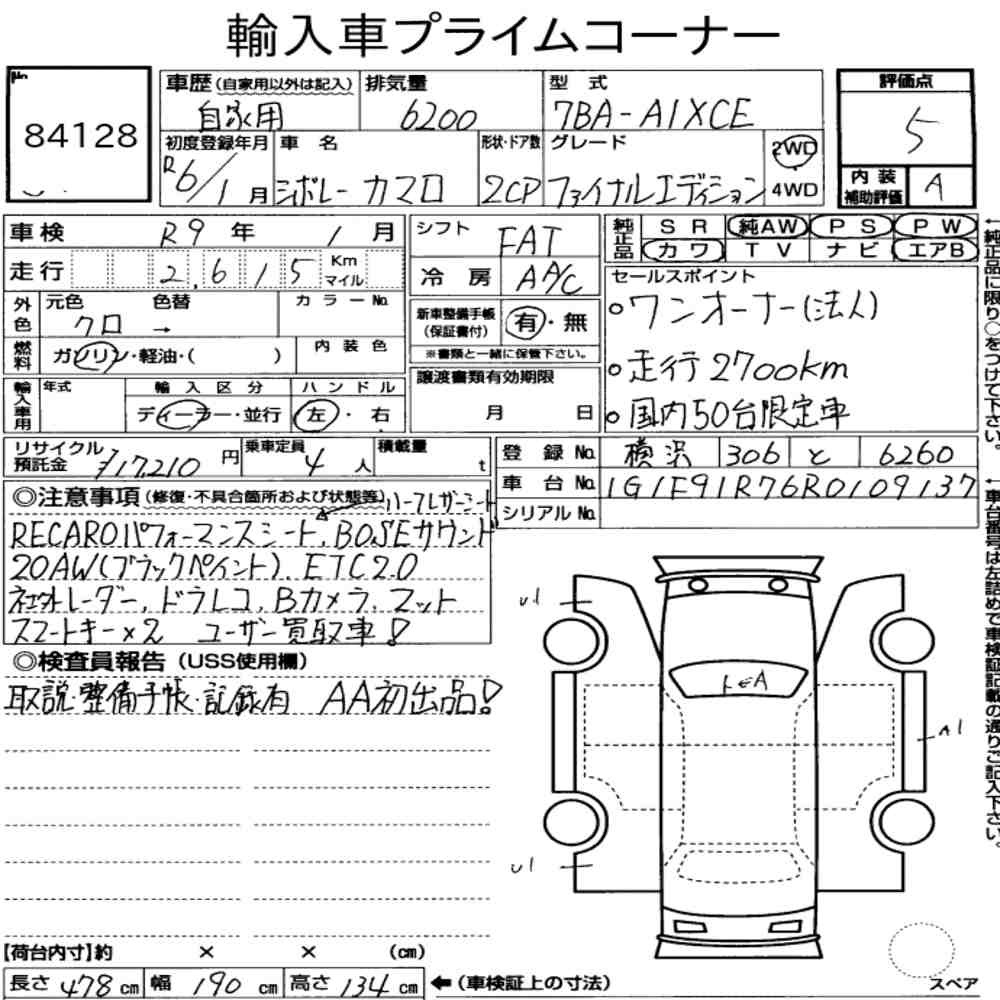 輸入車プライムコーナー
No.
84128
車歴(自家用以外は記入) 自家用
排気量 6200
型式 7BA-A1XCE
評価点 5
初度登録年月 R6/1月
車名 シボレー カマロ
形状・ドア数 2CP
グレード ファイナルエディション
2WD
4WD
内装補助評価 A
車検 R9年 1月
シフト FAT
純正品 SR 純AW PS PW
カワ TV ナビ エアB
走行 2,615 Km マイル
冷房 AA/C
セールスポイント
○ワンオーナー(法人)
○走行2700km
○国内50台限定車
外色 元色 クロ → 色替 カラーNo.
新車整備手帳(保証書付) 有・無
※書類と一緒に保管下さい。
燃料 ガソリン・軽油・( ) 内装色
譲渡書類有効期限 月 日
輸入車用 年式 輸入区分 ディーラー・並行 ハンドル 左・右
リサイクル預託金 ¥17,210円
乗車定員 4人
積載量 t
登録No. 横浜 306 と 6260
車台No. 1G1F91R76R0109137
シリアルNo.
◎注意事項(修復・不具合箇所および状態等) ハーフレザーシート
RECAROパフォーマンスシート、BOSEサウンド
20AW(ブラックペイント)、ETC2.0
社外レーダー、ドラレコ、Bカメラ、マット
スマートキー×2 ユーザー買取車!
◎検査員報告(USS使用欄)
取説・整備手帳・記録有 AA初出品!
U1
A1
U1
【荷台内寸】約 × × (cm)
長さ 478cm 幅 190cm 高さ 134cm ←(車検証上の寸法)
スペア
←純正品に限り○をつけて下さい。
←車台番号は左詰めで車検証記載の通りご記入下さい。